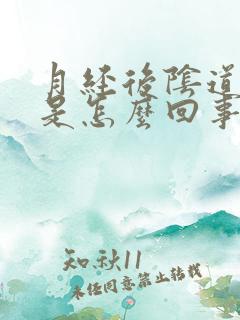 月经後陰道
是怎麼回事
知秋11
未经同意禁止转载